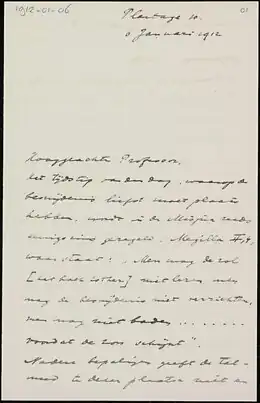 1912-01-06
01
Plantage 10.
6 Januari 1912
Hooggeachte Professor.
Het tijdstip van den dag, waarop de
besnijdenis liefst moet plaats
hebben, wordt in de Misjna reeds
eenigszins geregeld. Megilla II, 4,
waar staat: „Men mag de rol
[uit het boek Esther] niet lezen, men
mag de besnijdenis niet verrichten,
men mag niet baden . . . . . . .
voordat de zon schijnt".
Nadere bepalingen geeft de Tal-
mud te dezer plaatse niet en